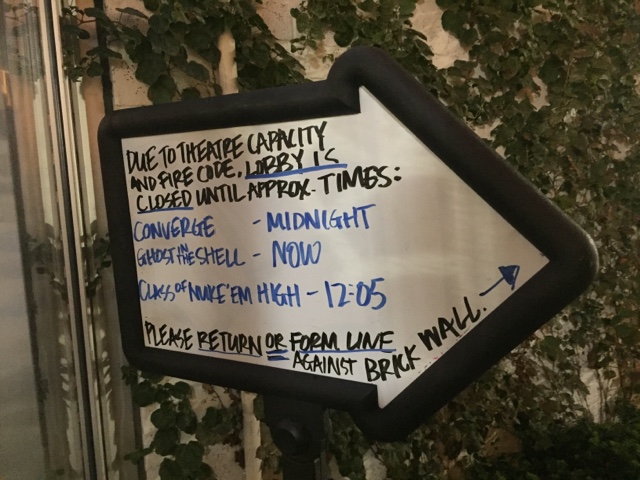 DUE TO THEATRE CAPACITY
AND FIRE CODE, LOBBY IS
CLOSED UNTIL APPROX. TIMES:
CONVERGE - MIDNIGHT
GHOST IN THE SHELL - NOW
CLASS OF NUKE'EM HIGH - 12:05
PLEASE RETURN OR FORM LINE
AGAINST BRICK WALL.